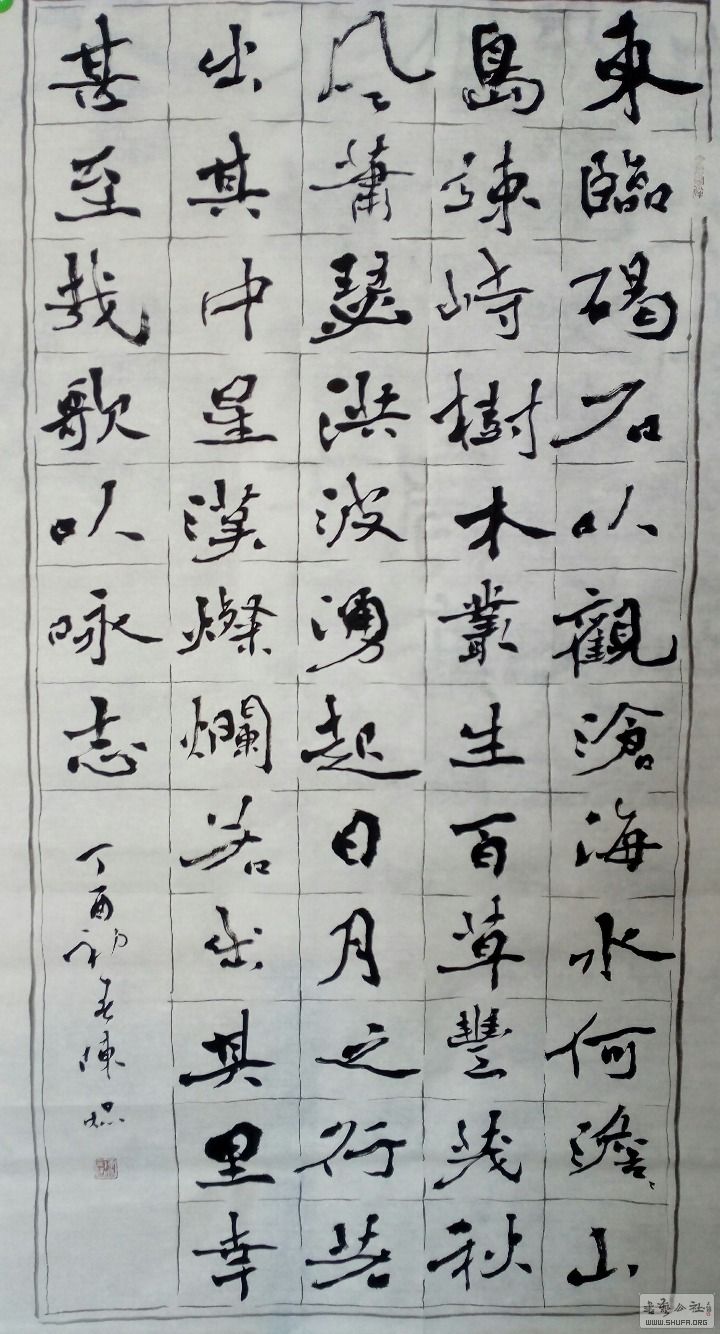 東臨碣石以觀滄海水何澹〻山
島竦峙樹木叢生百草豐茂秋
風蕭瑟洪波湧起日月之行若
出其中星漢燦爛若出其里幸
甚至哉歌以咏志
丁酉初春陳
书艺公社
WWW.SHUFA.ORG